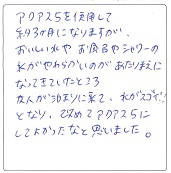 アクアス5を使用して
約3ヶ月になりますが、
おいしい水や お風呂やシャワーの
水がやわらかいのが あたりまえに
なってきていたところ
友人が泊まりに来て、水がスゴイ!!
となり、改めてアクアス5に
してよかったなと思いました。